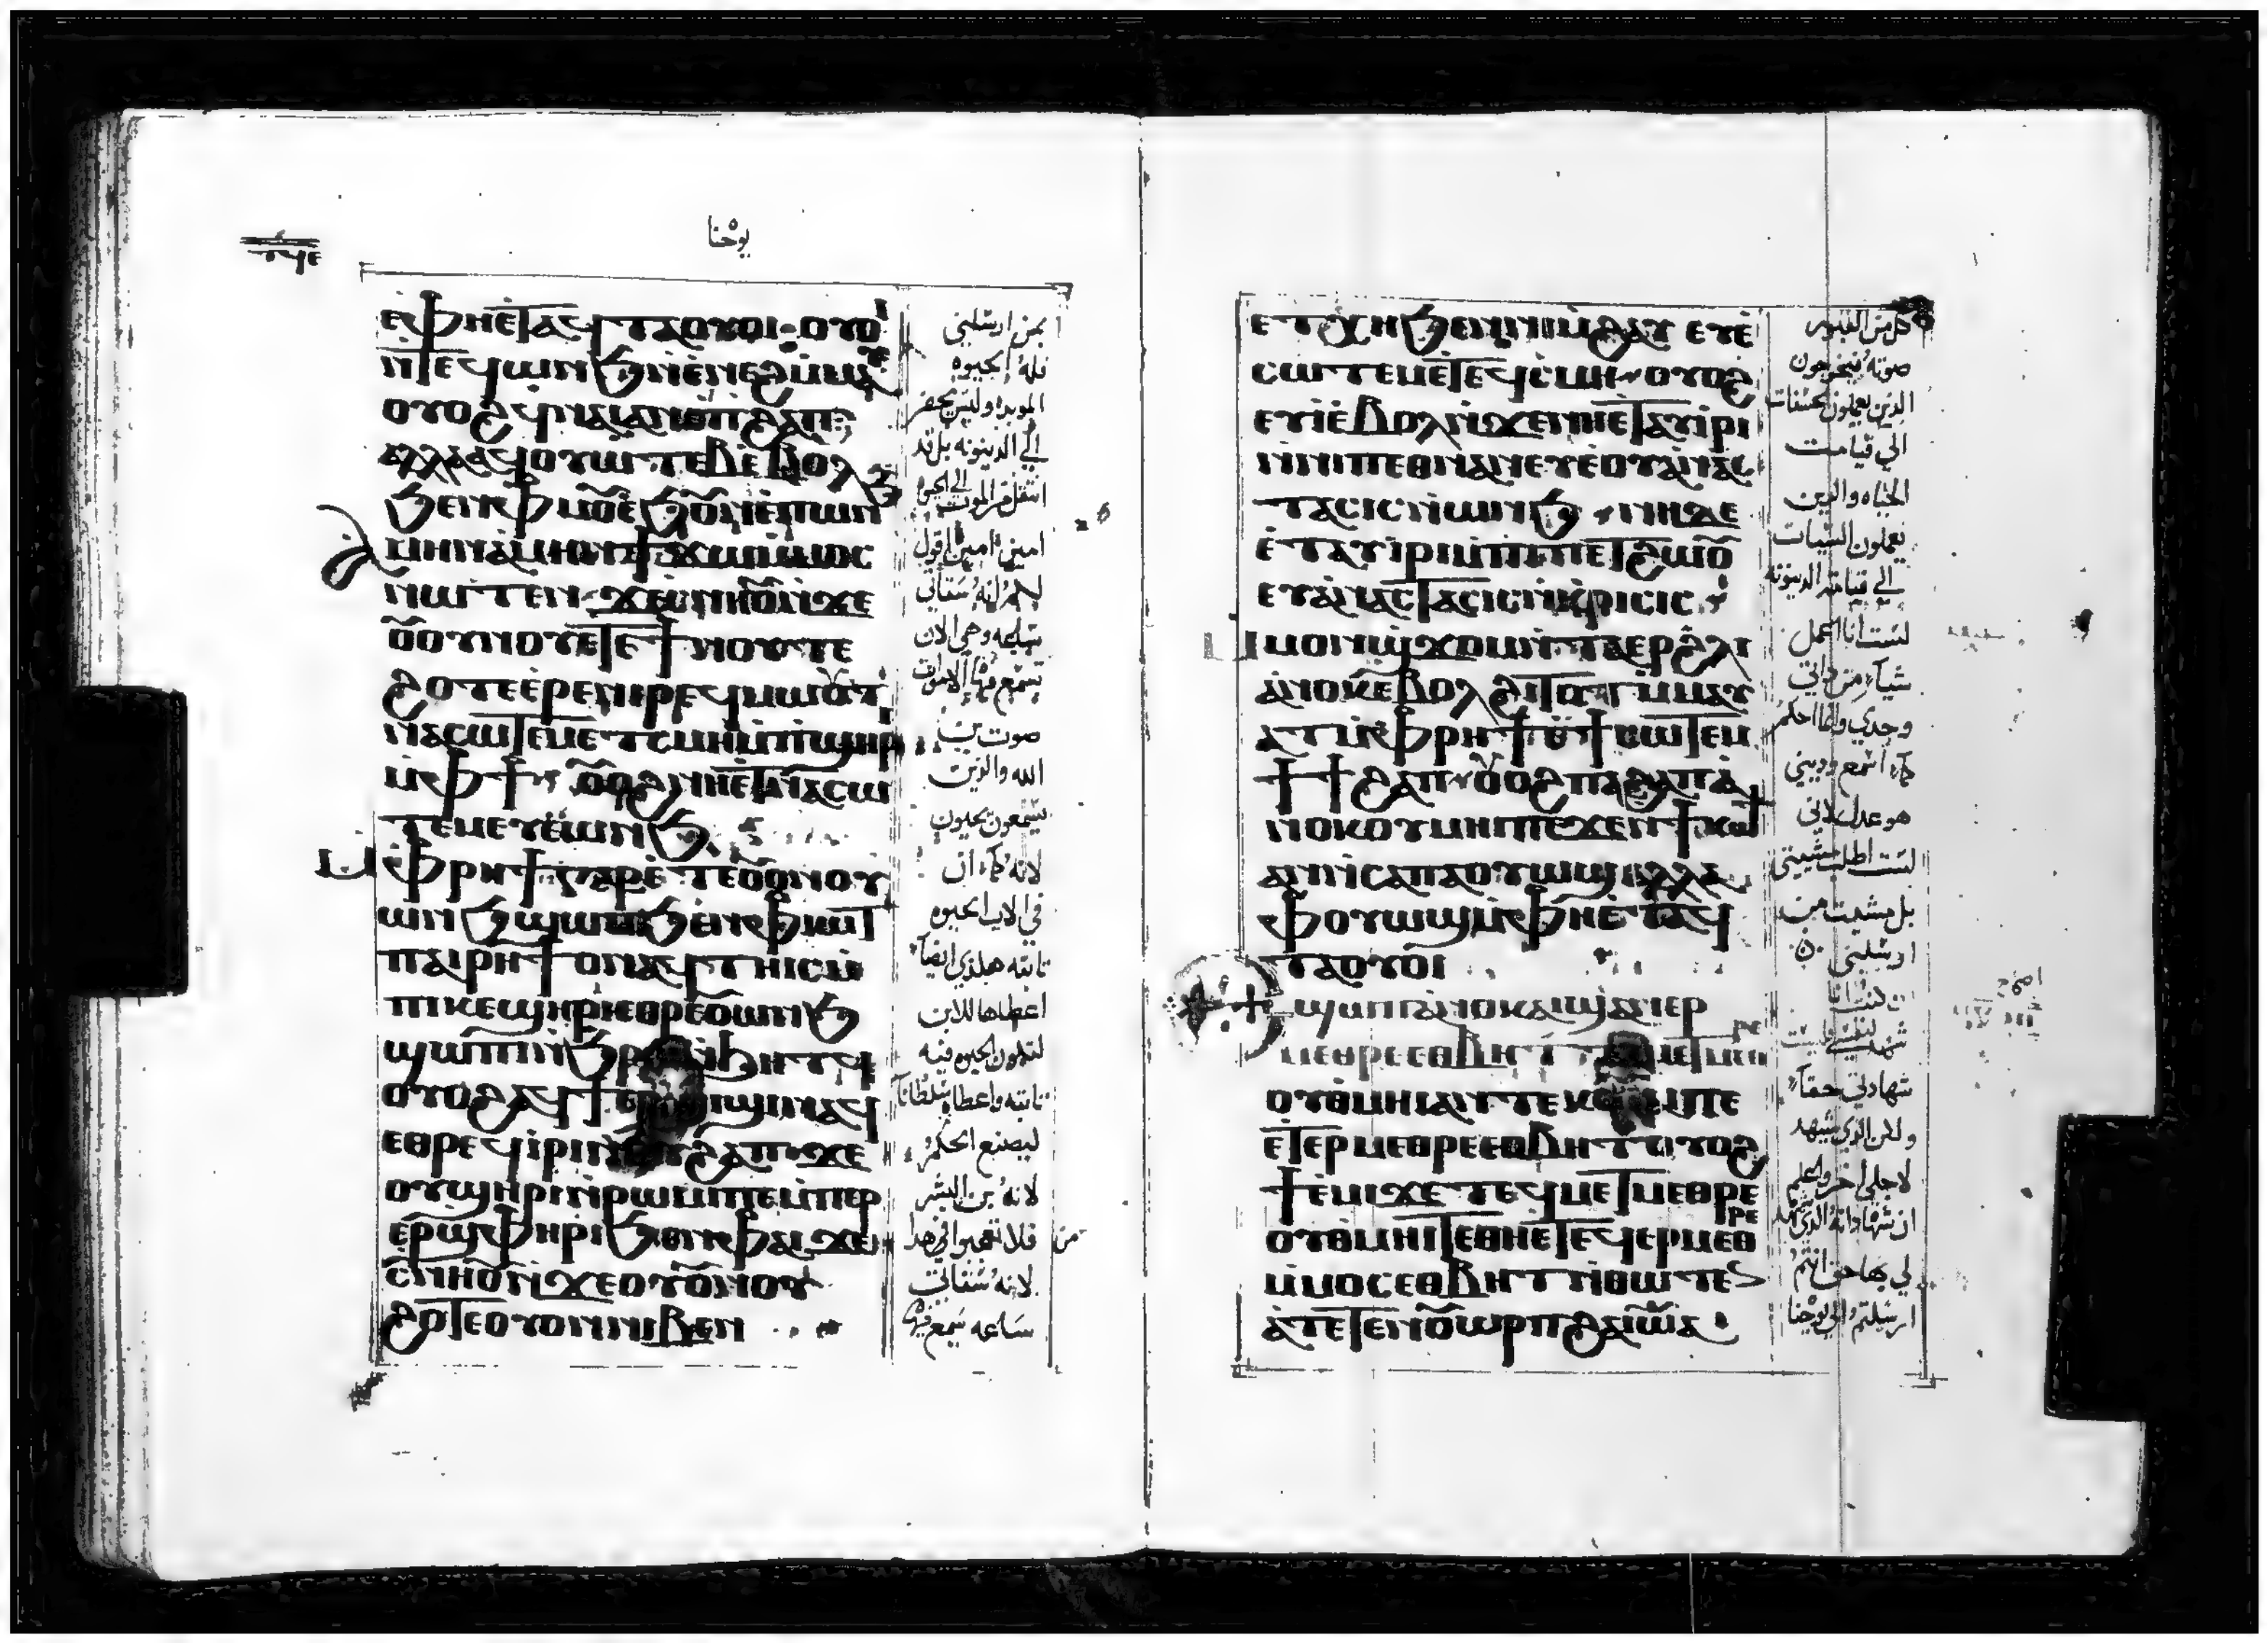 ⲧϥⲉ
يوحنا
ⲉⲫⲏⲉⲧⲁϥⲧⲁⲟⲩⲟⲓ ⲟⲩⲟ
ⲛⲧⲉϥⲱⲛϧ ⲛⲉⲛⲉϩ
ⲟⲩⲟϩ ϥⲛⲁⲓ ⲁⲛ ⲉⲡϩⲁⲡ
ⲁⲗⲗⲁ ⲁϥⲟⲩⲱⲧⲉⲃ ⲉⲃⲟⲗ
ϧⲉⲛ ⲫⲙⲟⲩ ⲉϧⲟⲩⲛ ⲉⲡⲱⲛϧ
ⲁⲙⲏⲛ ⲁⲙⲏⲛ ϯϫⲱ ⲙⲙⲟⲥ
ⲛⲱⲧⲉⲛ ϫⲉ ⲥⲛⲏⲟⲩ ⲛϫⲉ
ⲟⲩⲟⲩⲛⲟⲩ ⲉⲧⲉ ϯⲛⲟⲩ ⲧⲉ
ϩⲟⲧⲉ ⲉⲣⲉ ⲛⲓⲣⲉϥⲙⲱⲟⲩⲧ
ⲛⲁⲥⲱⲧⲉⲙ ⲉⲧⲥⲙⲏ ⲙⲡϣⲏⲣⲓ
ⲙⲫϯ ⲟⲩⲟϩ ⲛⲏⲉⲧⲛⲁⲥⲱ
ⲧⲉⲙ ⲉⲩⲉⲱⲛϧ
ⲙⲫⲣⲏϯ ⲅⲁⲣ ⲉⲧⲉ ⲟⲩⲟⲛ ⲟⲩ
ⲱⲛϧ ϣⲟⲡ ϧⲉⲛ ⲫⲓⲱⲧ
ⲡⲁⲓⲣⲏϯ ⲟⲛ ⲁϥⲧⲏⲓⲥ ⲙ
ⲡⲓⲕⲉϣⲏⲣⲓ ⲉⲑⲣⲉ ⲟⲩⲱⲛϧ
ϣⲱⲡⲓ ⲛϧⲣⲏⲓ ⲛϧⲏⲧϥ
ⲟⲩⲟϩ ⲁϥϯ ⲉⲣϣⲓϣⲓ ⲛⲁϥ
ⲉⲑⲣⲉϥⲓⲣⲓ ⲛⲟⲩϩⲁⲡ ϫⲉ
ⲟⲩϣⲏⲣⲓ ⲛⲣⲱⲙⲓ ⲡⲉ ⲙⲡⲉⲣ
ⲉⲣϣⲫⲏⲣⲓ ϧⲉⲛ ⲫⲁⲓ ϫⲉ
ⲥⲛⲏⲟⲩ ⲛϫⲉ ⲟⲩⲟⲩⲛⲟⲩ
ϩⲟⲧⲉ ⲟⲩⲟⲛ ⲛⲓⲃⲉⲛ
بمن ارسلني
فله الحيوه
الموبده وليس يحضر
الي الدينونه بل قد
انتقل من الموت الي الحيوه
امين امين اقول
لكم انه ستاتي
ساعه وهي الان
تسمع فيها الاموات
صوت بن
الله والذين
يسمعون يحيون
لانه كما ان
في الاب الحيوه
ثابته هكذي ايضا
اعطاها للابن
لتكون الحيوه فيه
ثابته واعطاه سلطانا
ليصنع الحكم
لانه بن البشر
فلا تعجبوا في هدا
من
لانه ستاتي
ساعه يسمع فيها
ⲉⲧⲭⲏ ϧⲉⲛ ⲛⲓⲙϩⲁⲩ ⲉⲩⲉ
ⲥⲱⲧⲉⲙ ⲉⲧⲉϥⲥⲙⲏ ⲟⲩⲟϩ
ⲉⲩⲓ ⲉⲃⲟⲗ ⲛϫⲉ ⲛⲏⲉⲧⲁⲩⲓⲣⲓ
ⲛⲛⲓⲡⲉⲑⲛⲁⲛⲉⲩ ⲉⲟⲩⲁⲛⲁⲥ
ⲧⲁⲥⲓⲥ ⲛⲱⲛϧ ⲛⲏ ⲇⲉ
ⲉⲧⲁⲩⲓⲣⲓ ⲛⲛⲓⲡⲉⲧϩⲱⲟⲩ
ⲉⲩⲁⲛⲁⲥⲧⲁⲥⲓⲥ ⲛⲕⲣⲓⲥⲓⲥ
ⲙⲙⲟⲛ ϣϫⲟⲙ ⲛⲧⲁⲉⲣ ϩⲗⲓ
ⲁⲛⲟⲕ ⲉⲃⲟⲗ ϩⲓⲧⲟⲧ ⲙⲙⲁⲩ
ⲁⲧ ⲙⲫⲣⲏϯ ⲉϯⲥⲱⲧⲉⲙ
ϯϯϩⲁⲡ ⲟⲩⲟϩ ⲡⲁϩⲁⲡ ⲁ
ⲛⲟⲕ ⲟⲩⲙⲏⲓ ⲡⲉ ϫⲉ ⲛϯⲕⲱϯ
ⲁⲛ ⲛⲥⲁ ⲡⲁⲟⲩⲱϣ ⲁⲗⲗⲁ
ⲫⲟⲩⲱϣ ⲙⲫⲏⲉⲧⲁϥ
ⲧⲁⲟⲩⲟⲓ
ⲉϣⲱⲡ ⲁⲛⲟⲕ ⲁⲓϣⲁⲛⲉⲣ
ⲙⲉⲑⲣⲉ ⲉⲑⲃⲏⲧ ⲧⲁⲙⲉⲧⲙⲉⲑⲣⲉ
ⲟⲩⲑⲙⲏⲓ ⲁⲛ ⲧⲉ ⲕⲉⲟⲩⲁⲓ ⲡⲉ
ⲉⲧⲉⲣⲙⲉⲑⲣⲉ ⲉⲑⲃⲏⲧ ⲟⲩⲟϩ
ϯⲉⲙⲓ ϫⲉ ⲧⲉϥⲙⲉⲧⲙⲉⲑⲣⲉ
ⲟⲩⲑⲙⲏⲓ ⲧⲉ ⲑⲏⲉⲧⲉϥⲉⲣⲙⲉⲑⲣⲉ
ⲙⲙⲟⲥ ⲉⲑⲃⲏⲧ ⲛⲑⲱⲧⲉⲛ
ⲁⲧⲉⲧⲉⲛⲟⲩⲱⲣⲡ ϩⲁ ⲓⲱⲁ
كل من القبور
صوته فيخرجون
الذين يعملون الحسنات
الي قيامت
الحياه والذين
يعملون السيات
الي قيامة الدينونه
لست انا اعمل
شيا من داتي
وحدي وانما احكم
كما اسمع وديني
هو عدل لاني
لست اطلب مشيتي
بل مشيت من
ارسلني
ان كنت انا
شهادتي حقا
ولكن الذي يشهد
لاجلي اخر واعلم
ان شهادته الذي يشهد
لي بها حق انتم
ارسلتم الي يوحنا